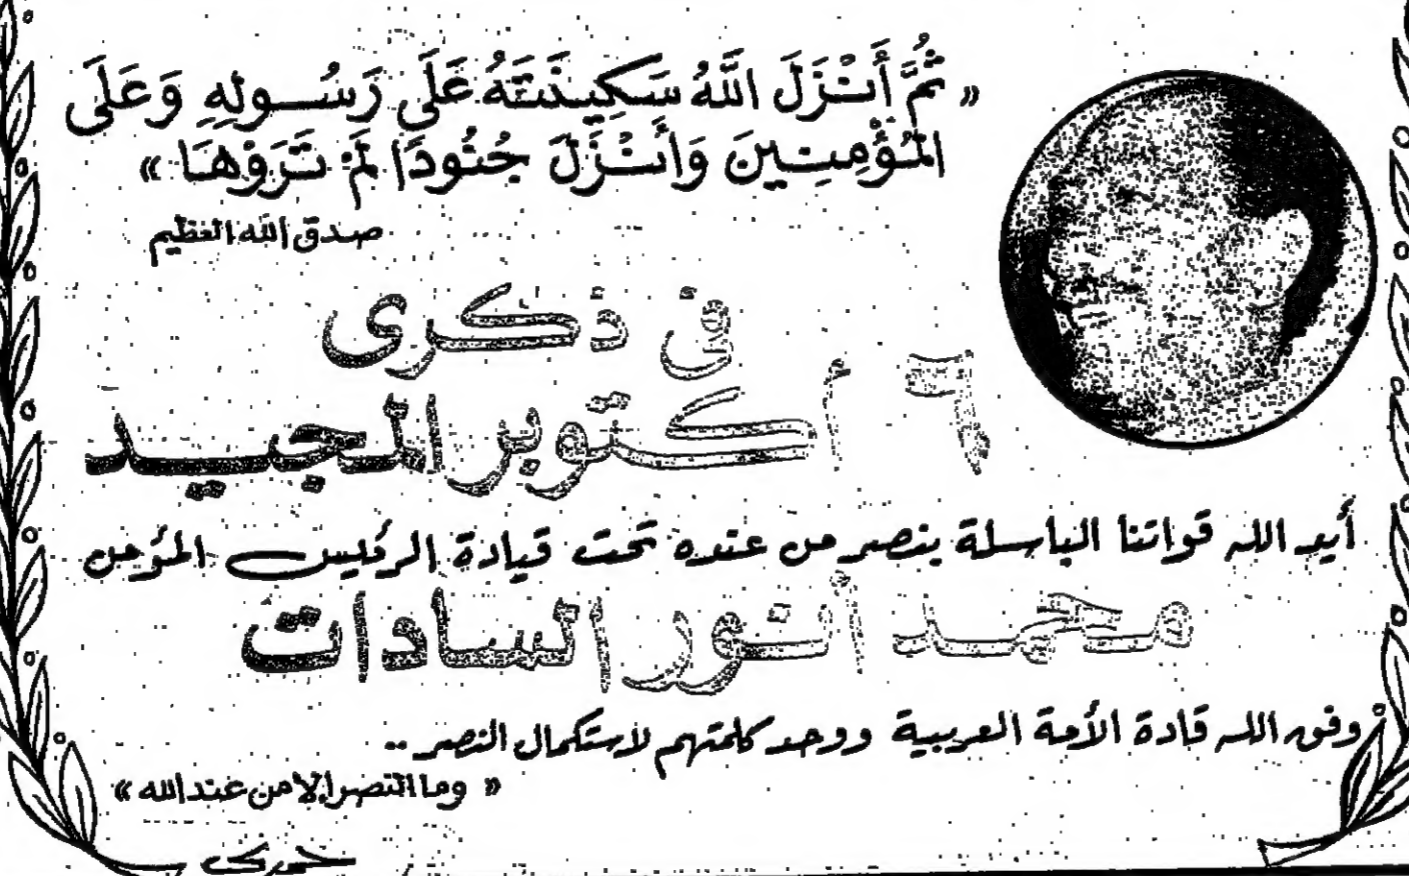 « ثُمَّ أَنْزَلَ اللَّهُ سَكِينَتَهُ عَلَى رَسُولِهِ وَعَلَى
الْمُؤْمِنِينَ وَأَنْزَلَ جُنُودًا لَمْ تَرَوْهَا »
صدق الله العظيم
فى ذكرى
٦ اكتوبر المجيد
أيد الله قواتنا الباسلة بنصر من عنده تحت قيادة الرئيس المؤمن
محمد أنور السادات
وفق الله قادة الأمة العربية ووحد كلمتهم لاستكمال النصر ..
« وما النصر إلا من عند الله »